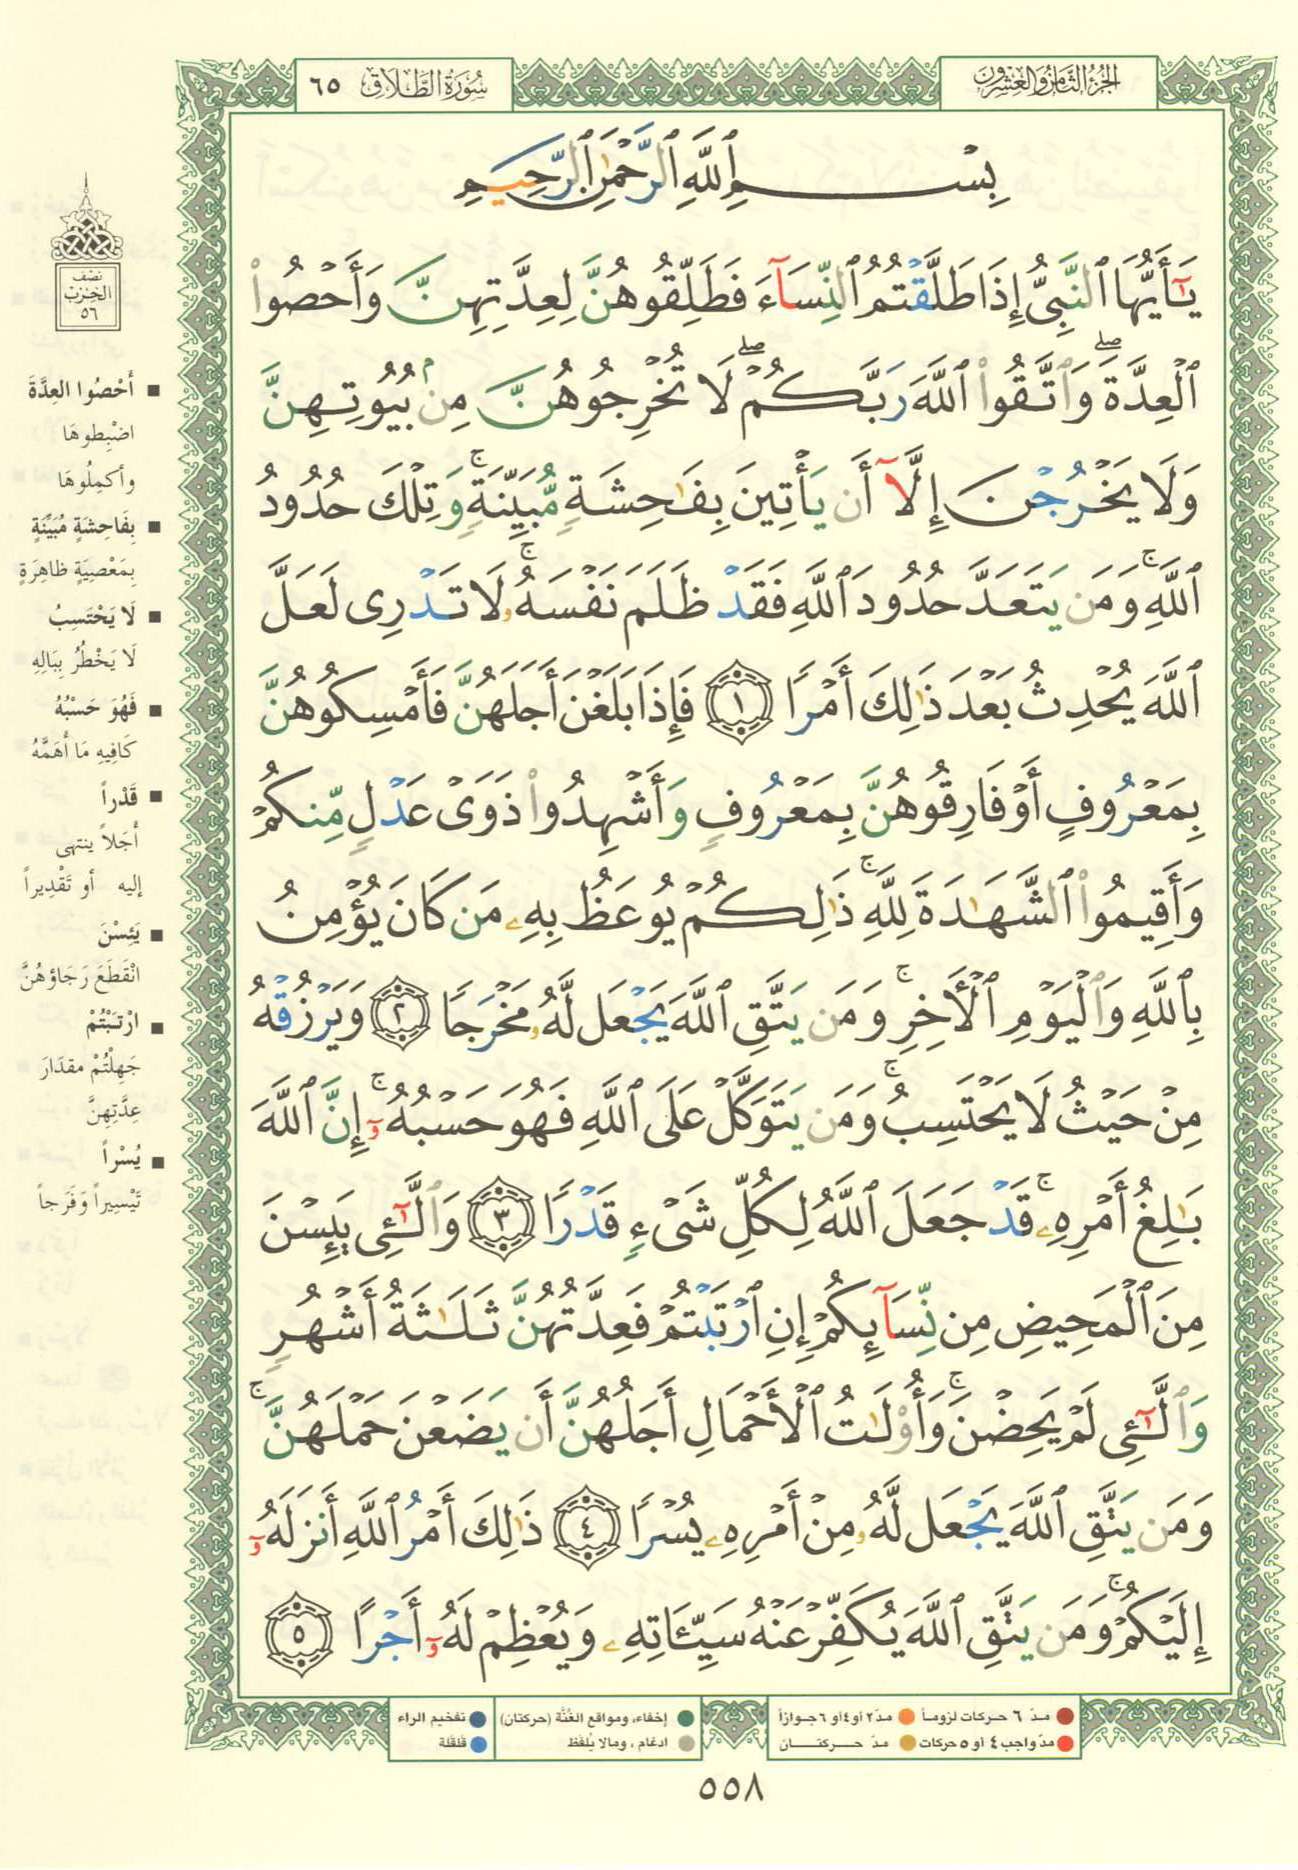 الجزء الثامن والعشرون
سُورَةُ الطَّلَاق ٦٥
بِسْمِ ٱللَّهِ ٱلرَّحْمَٰنِ ٱلرَّحِيمِ
يَٰٓأَيُّهَا ٱلنَّبِىُّ إِذَا طَلَّقْتُمُ ٱلنِّسَآءَ فَطَلِّقُوهُنَّ لِعِدَّتِهِنَّ وَأَحْصُوا۟
ٱلْعِدَّةَ ۖ وَٱتَّقُوا۟ ٱللَّهَ رَبَّكُمْ ۖ لَا تُخْرِجُوهُنَّ مِنۢ بُيُوتِهِنَّ
وَلَا يَخْرُجْنَ إِلَّآ أَن يَأْتِينَ بِفَٰحِشَةٍ مُّبَيِّنَةٍ ۚ وَتِلْكَ حُدُودُ
ٱللَّهِ ۚ وَمَن يَتَعَدَّ حُدُودَ ٱللَّهِ فَقَدْ ظَلَمَ نَفْسَهُۥ ۚ لَا تَدْرِى لَعَلَّ
ٱللَّهَ يُحْدِثُ بَعْدَ ذَٰلِكَ أَمْرًا ١ فَإِذَا بَلَغْنَ أَجَلَهُنَّ فَأَمْسِكُوهُنَّ
بِمَعْرُوفٍ أَوْ فَارِقُوهُنَّ بِمَعْرُوفٍ وَأَشْهِدُوا۟ ذَوَىْ عَدْلٍ مِّنكُمْ
وَأَقِيمُوا۟ ٱلشَّهَٰدَةَ لِلَّهِ ۚ ذَٰلِكُمْ يُوعَظُ بِهِۦ مَن كَانَ يُؤْمِنُ
بِٱللَّهِ وَٱلْيَوْمِ ٱلْأَخِرِ ۚ وَمَن يَتَّقِ ٱللَّهَ يَجْعَل لَّهُۥ مَخْرَجًا ٢ وَيَرْزُقْهُ
مِنْ حَيْثُ لَا يَحْتَسِبُ ۚ وَمَن يَتَوَكَّلْ عَلَى ٱللَّهِ فَهُوَ حَسْبُهُۥٓ ۚ إِنَّ ٱللَّهَ
بَٰلِغُ أَمْرِهِۦ ۚ قَدْ جَعَلَ ٱللَّهُ لِكُلِّ شَىْءٍ قَدْرًا ٣ وَٱلَّٰٓـِٔى يَئِسْنَ
مِنَ ٱلْمَحِيضِ مِن نِّسَآئِكُمْ إِنِ ٱرْتَبْتُمْ فَعِدَّتُهُنَّ ثَلَٰثَةُ أَشْهُرٍ
وَٱلَّٰٓـِٔى لَمْ يَحِضْنَ ۚ وَأُو۟لَٰتُ ٱلْأَحْمَالِ أَجَلُهُنَّ أَن يَضَعْنَ حَمْلَهُنَّ ۚ
وَمَن يَتَّقِ ٱللَّهَ يَجْعَل لَّهُۥ مِنْ أَمْرِهِۦ يُسْرًا ٤ ذَٰلِكَ أَمْرُ ٱللَّهِ أَنزَلَهُۥٓ
إِلَيْكُمْ ۚ وَمَن يَتَّقِ ٱللَّهَ يُكَفِّرْ عَنْهُ سَيِّـَٔاتِهِۦ وَيُعْظِمْ لَهُۥٓ أَجْرًا ٥
نصف
الحزب
٥٦
أَحْصُوا العِدَّةَ
اضْبِطوهَا
وأكمِلُوهَا
بِفَاحِشَةٍ مُبَيِّنَةٍ
بِمَعْصِيَةٍ ظاهِرَةٍ
لَا يَحْتَسِبُ
لَا يَخْطُرُ بِبَالِهِ
فَهُوَ حَسْبُهُ
كَافِيهِ مَا أَهَمَّهُ
قَدْراً
أَجَلاً ينتهى
إليه أو تَقْدِيراً
يَئِسْنَ
انْقَطَعَ رَجَاؤهُنَّ
ارْتَبْتُمْ
جَهِلْتُمْ مقدَارَ
عِدَّتِهِنَّ
يُسْراً
تَيْسِيراً وَفَرَجاً
مدّ ٦ حركات لزوماً مدّ ٢ أو ٤ أو ٦ جوازاً
مدّ واجب ٤ أو ٥ حركات مدّ حركتان
إخفاء، ومواقع الغُنَّة (حركتان)
ادغام، ومالا يُلفَظ
تفخيم الراء
قلقلة
٥٥٨